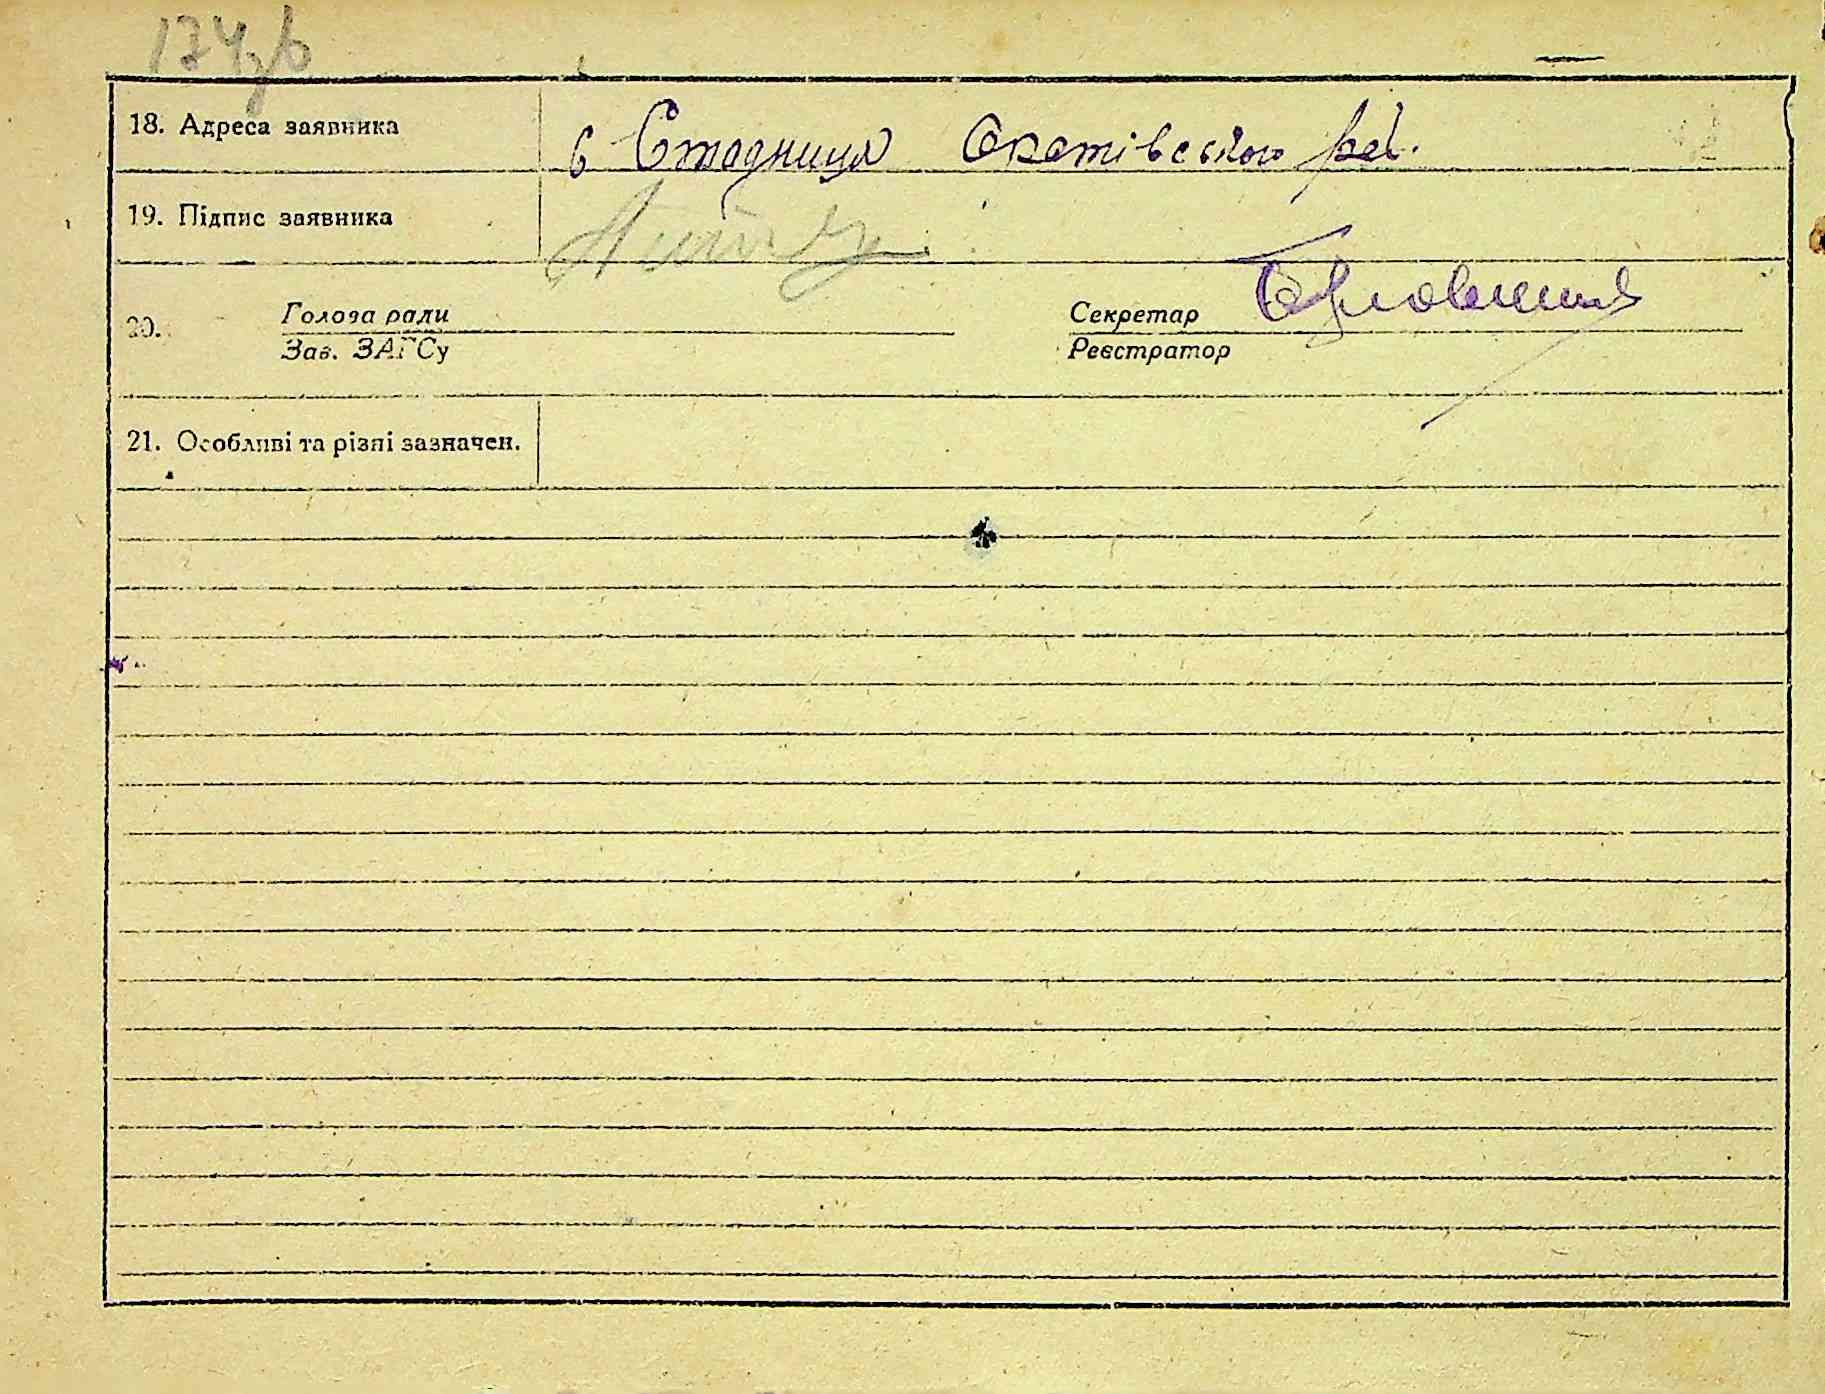 174зв
18. Адреса заявника
с Стадниця Оратівського рай.
19. Підпис заявника
20.
Голова ради
Зав. ЗАГСу
Секретар
Реєстратор
21. Особливі та різні зазначен.